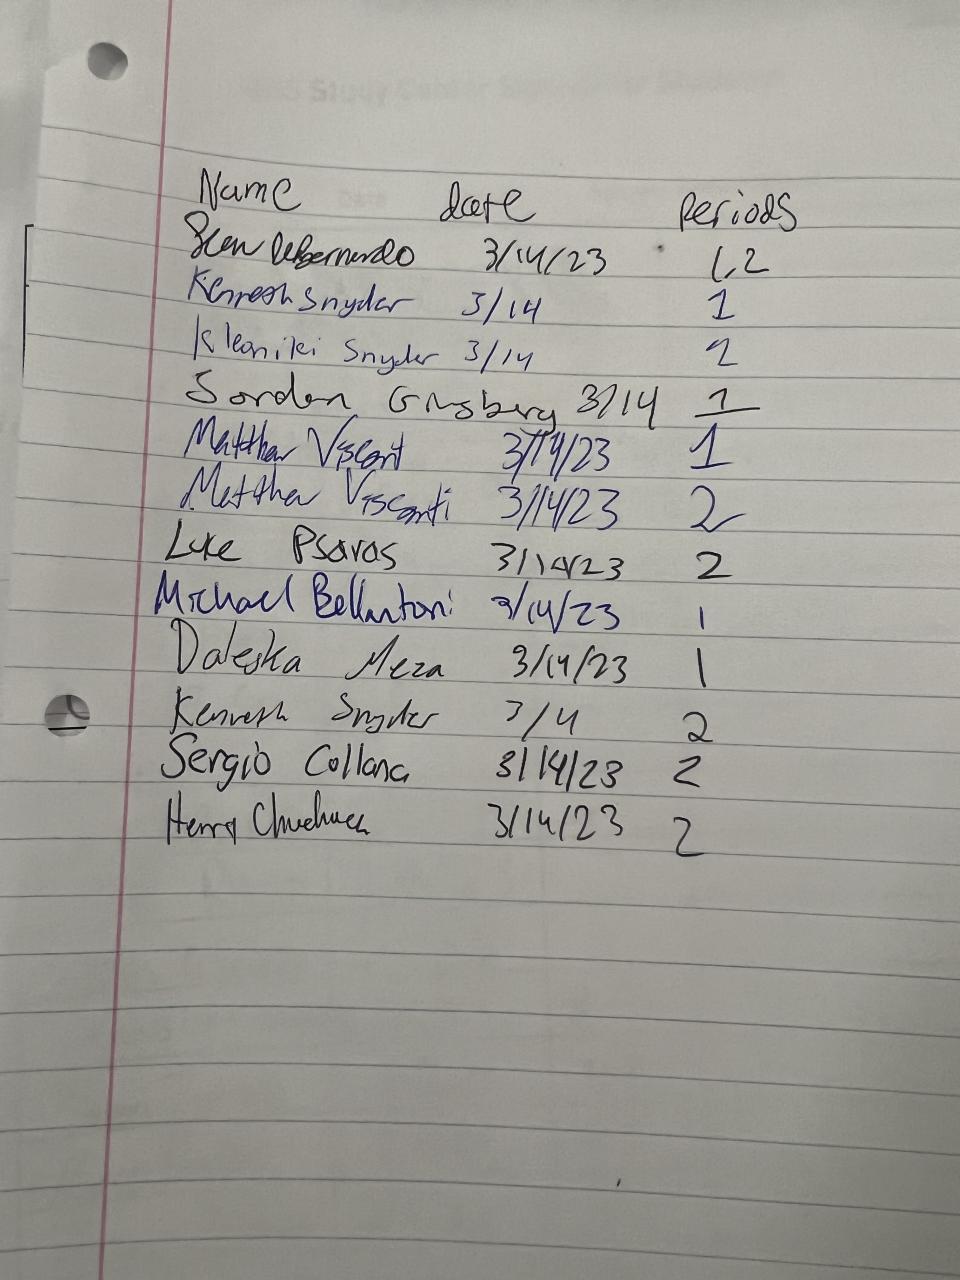 Name date Periods
Sean DeBernardo 3/14/23 1,2
Kenneth Snyder 3/14 1
Kleoniki Snyder 3/14 2
Jordan Ginsberg 3/14 1
Matthew Viscont 3/14/23 1
Matthew Visconti 3/14/23 2
Luke Psaras 3/14/23 2
Michael Bellantoni 3/14/23 1
Daleska Meza 3/14/23 1
Kenneth Snyder 3/4 2
Sergio Collana 3/14/23 2
Henry 3/14/23 2